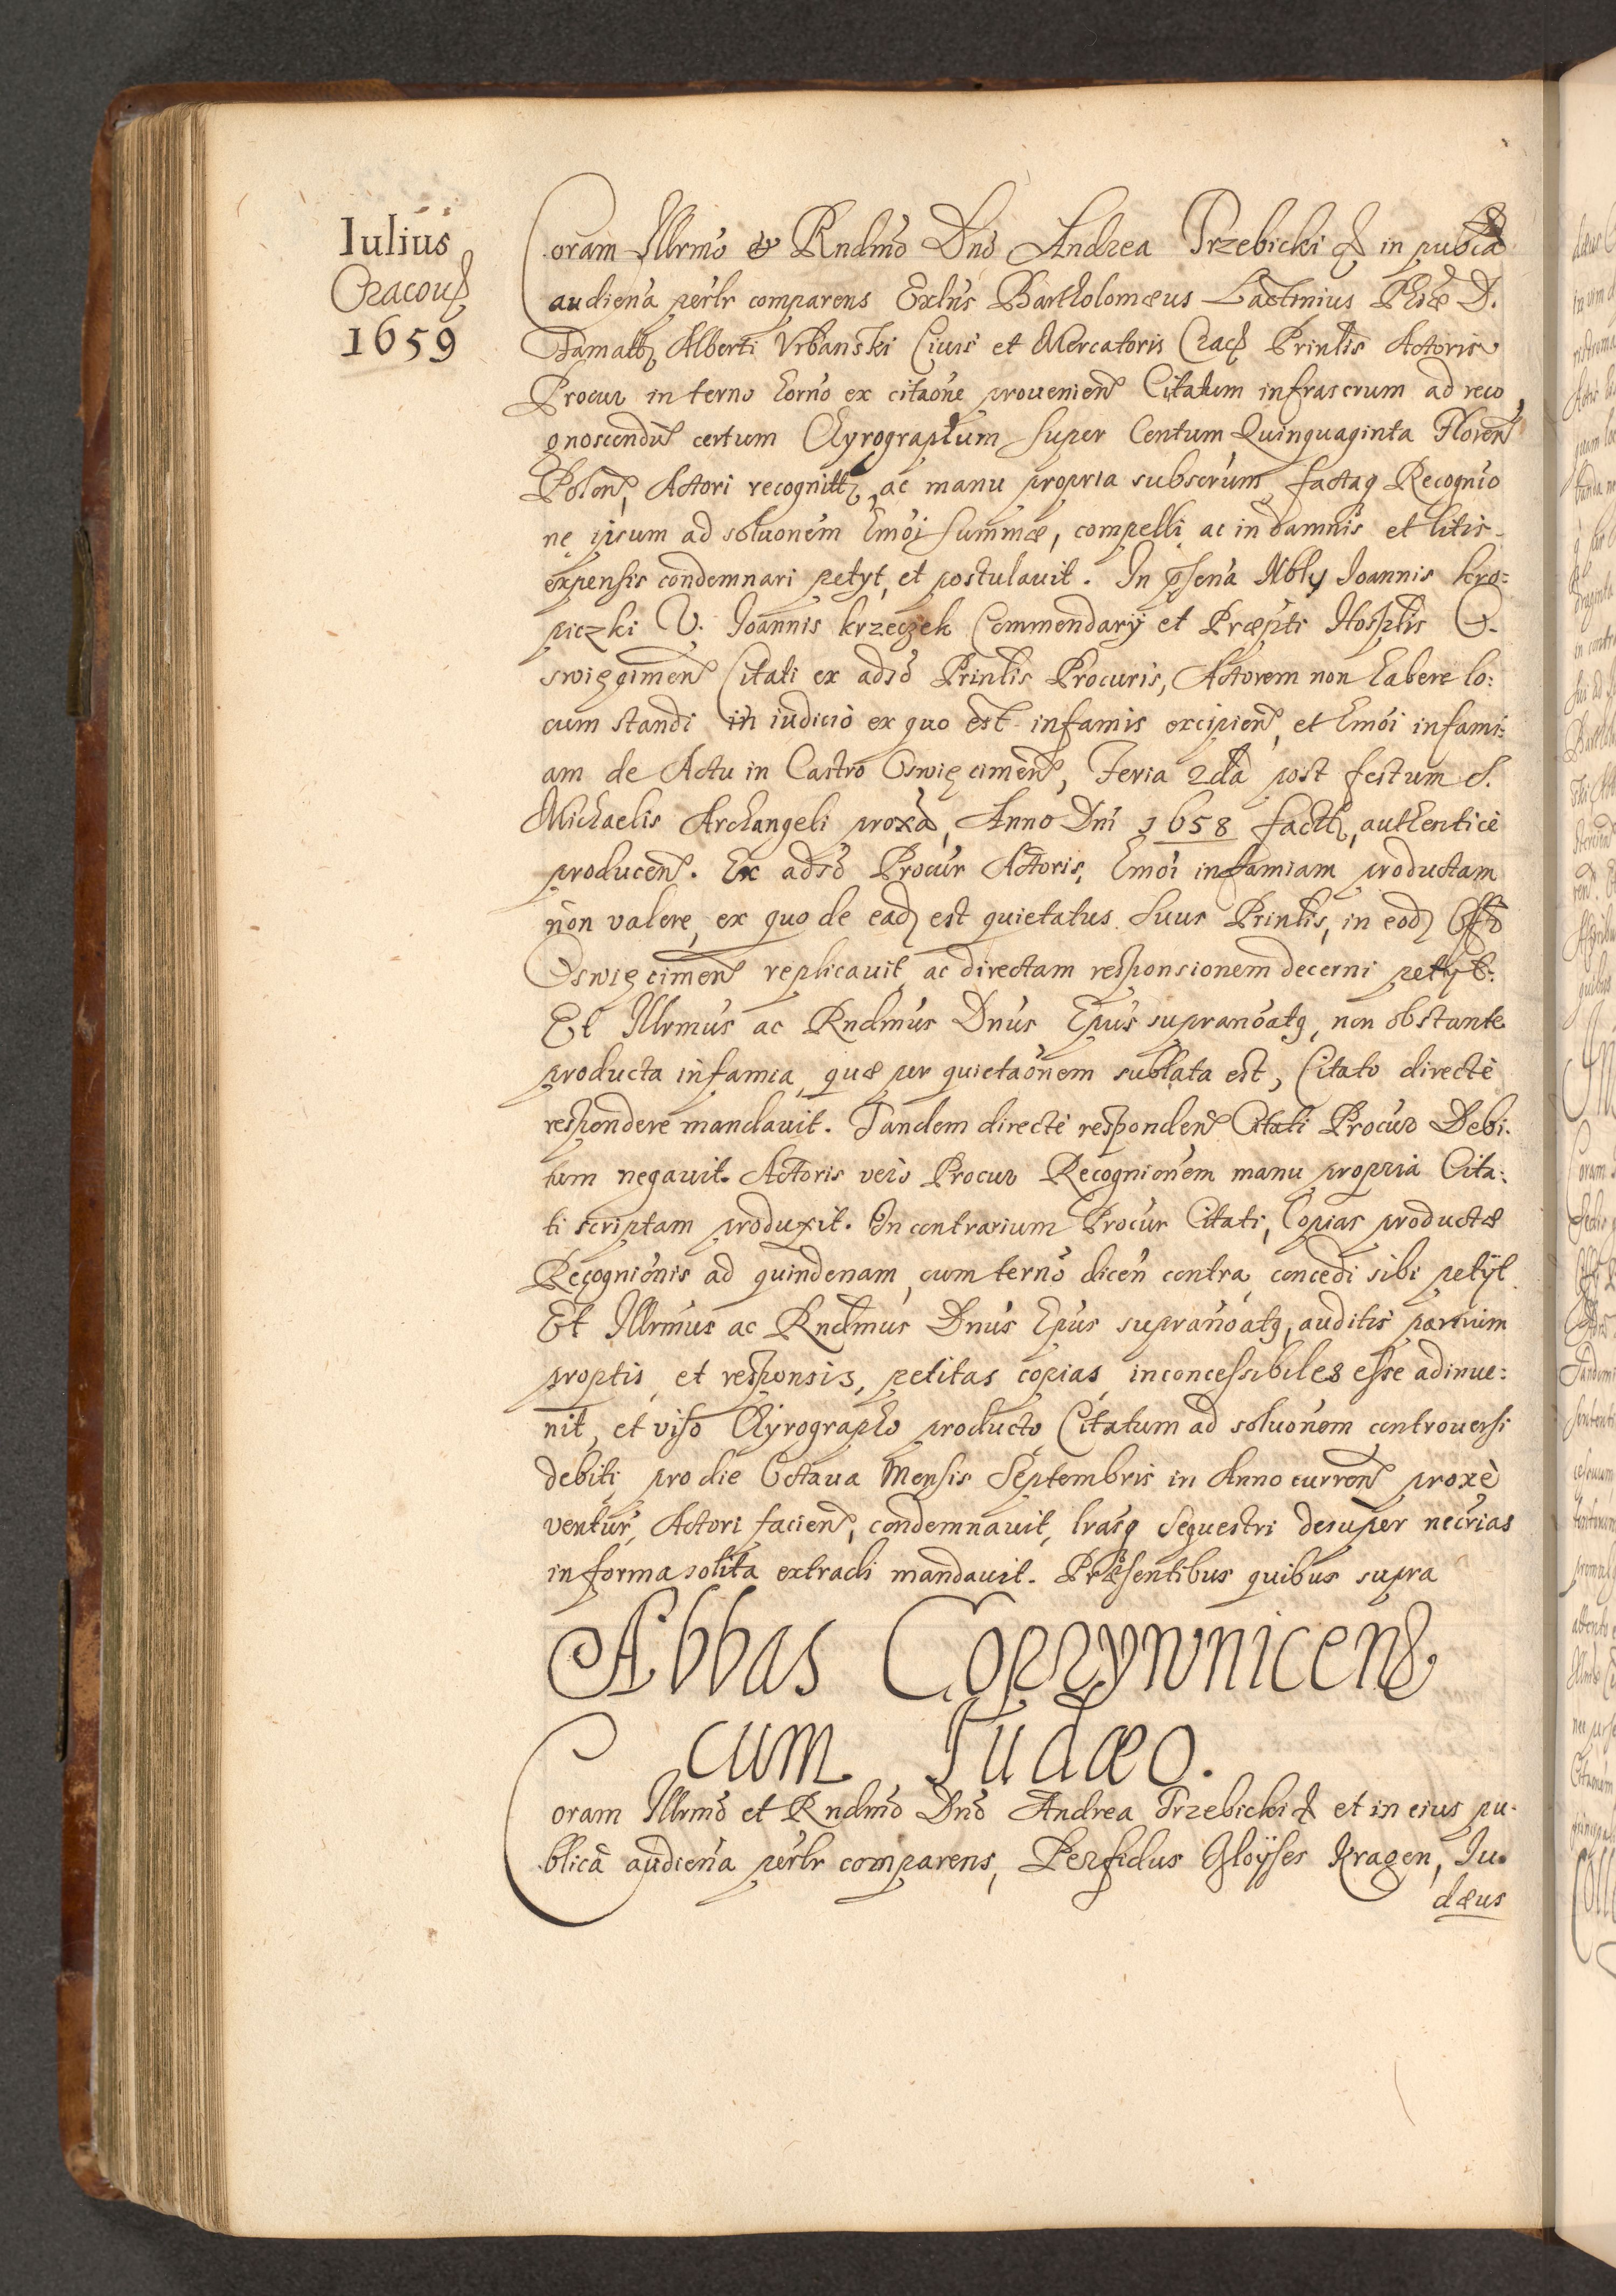 Iulius
Cracou
1659
Coram Illrmo et Rndmo Dno Andrea Trzebicki & in pubca
audiena persr comparens Exlns Bartholomæus Lactinius Phiæ D.
Famatt Alberti Vrbanski Ciuis et Mercatoris Crac Prinlis Actoris
Procur in terno horno ex citaone prouenien Citatum infrascrum ad reco
gnoscendu certum Chyrographum super Centum Quinquaginta Floren
Polon, Actori recognitt, ac manu propria subscrum, factaq Recognio
ne ipsum ad soluonem Emoi summæ, compelli ac in damnis et litis
expensis condemnari petyt, et postulauit. In psena Nbly Ioannis kro:
piczki V. Ioannis krzeczek Commendarij et Præpti Hosplis O.
swięcimen Citati ex adso Prinlis Procuris, Actorem non habere lo:
cum standi in iudicio ex quo est infamis excipien, et Emoi infami:
am de Actu in Castro Oswięcimen, Feria 2da post festum S.
Michaelis Archangeli proxa, Anno Dni 1658 factt, authentice
producen. Ex adso Procur Actoris, Emoi infamiam productam
non valere, ex quo de ead est quietatus suus Prinlis, in eod Offo
Oswięcimen replicauit ac directam responsionem decerni petyt.
Et Illrmus ac Rndmus Dnus Epus supranoatq, non obstante
producta infamia, quæ per quietaonem sublata est, Citato directe
respondere mandauit. Tandem directe responden Citati Procur Debi.
tum negauit. Actoris vero Procur Recognionem manu propria Cita:
ti scriptam produxit. In contrarium Procur Citati, Copias productæ
Recognionis ad quindenam, cum terno dicen contra, concedi sibi petijt
Et Illrmus ac Rndmus Dnus Epus supranoatq, auditis partium
proptis, et responsis, petitas copias, inconcessibiles esse adinue:
nit, et viso Chyrographo producto Citatum ad soluonem controuersi
debiti pro die Octaua Mensis Septembris in Anno curren proxe
ventur, Actori facien, condemnauit, lrasq Sequestri desuper necrias
in forma solita extradi mandauit. Præsentibus quibus supra
Abbas Coprzywnicens
cum Iudæo.
Coram Illrmo et Rndmo Dno Andrea Trzebicki & et in eius pu.
blica audiena persr comparens, Perfidus Gloÿses Kragen, Iu.
dæus